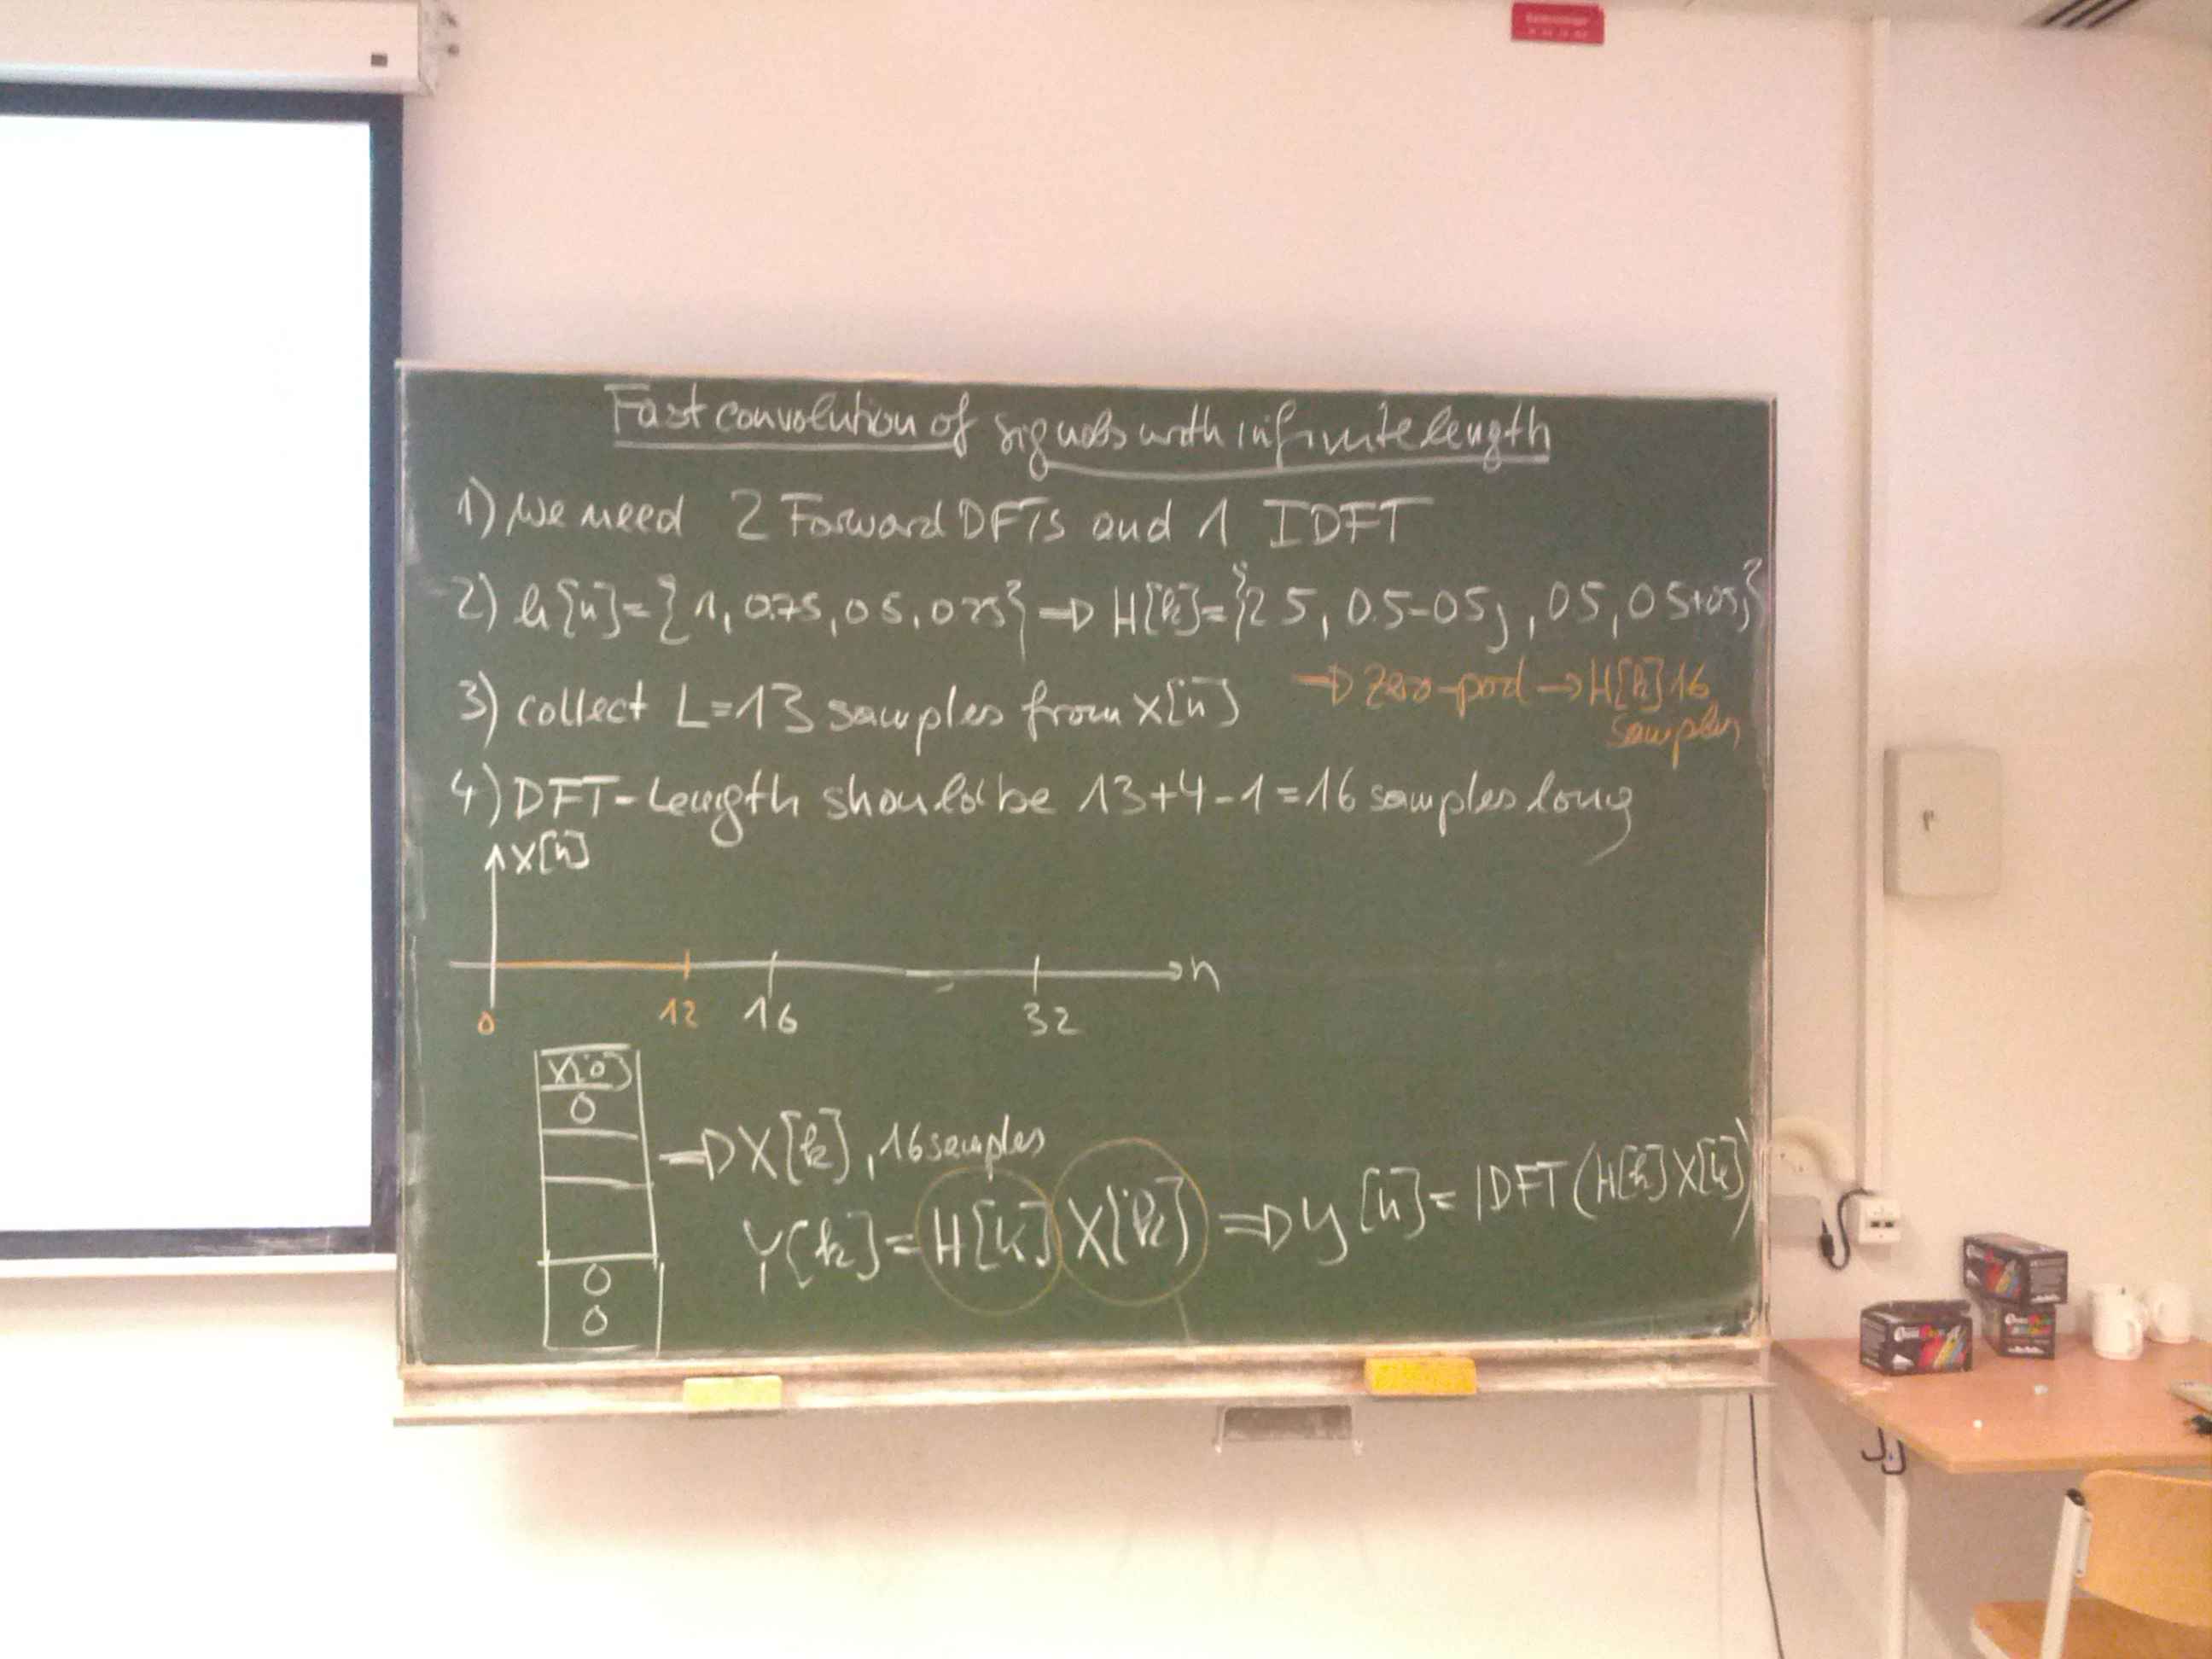 Fast convolution of signals with infinite length
1) we need 2 Forward DFTs and 1 IDFT
2) h[n]={1, 0.75, 0.5, 0.25} → H[k]={2.5, 0.5-0.5j, 0.5, 0.5+0.5j}
→ Zero-pad → H[k] 16
samples
3) collect L=13 samples from x[n]
4) DFT-Length should be 13+4-1=16 samples long
x[n]
n
0 12 16 32
x[0]
0
→ X[k], 16 samples
Y[k] = H[k] X[k] ⇒ y[n] = IDFT(H[k] X[k])
0
0